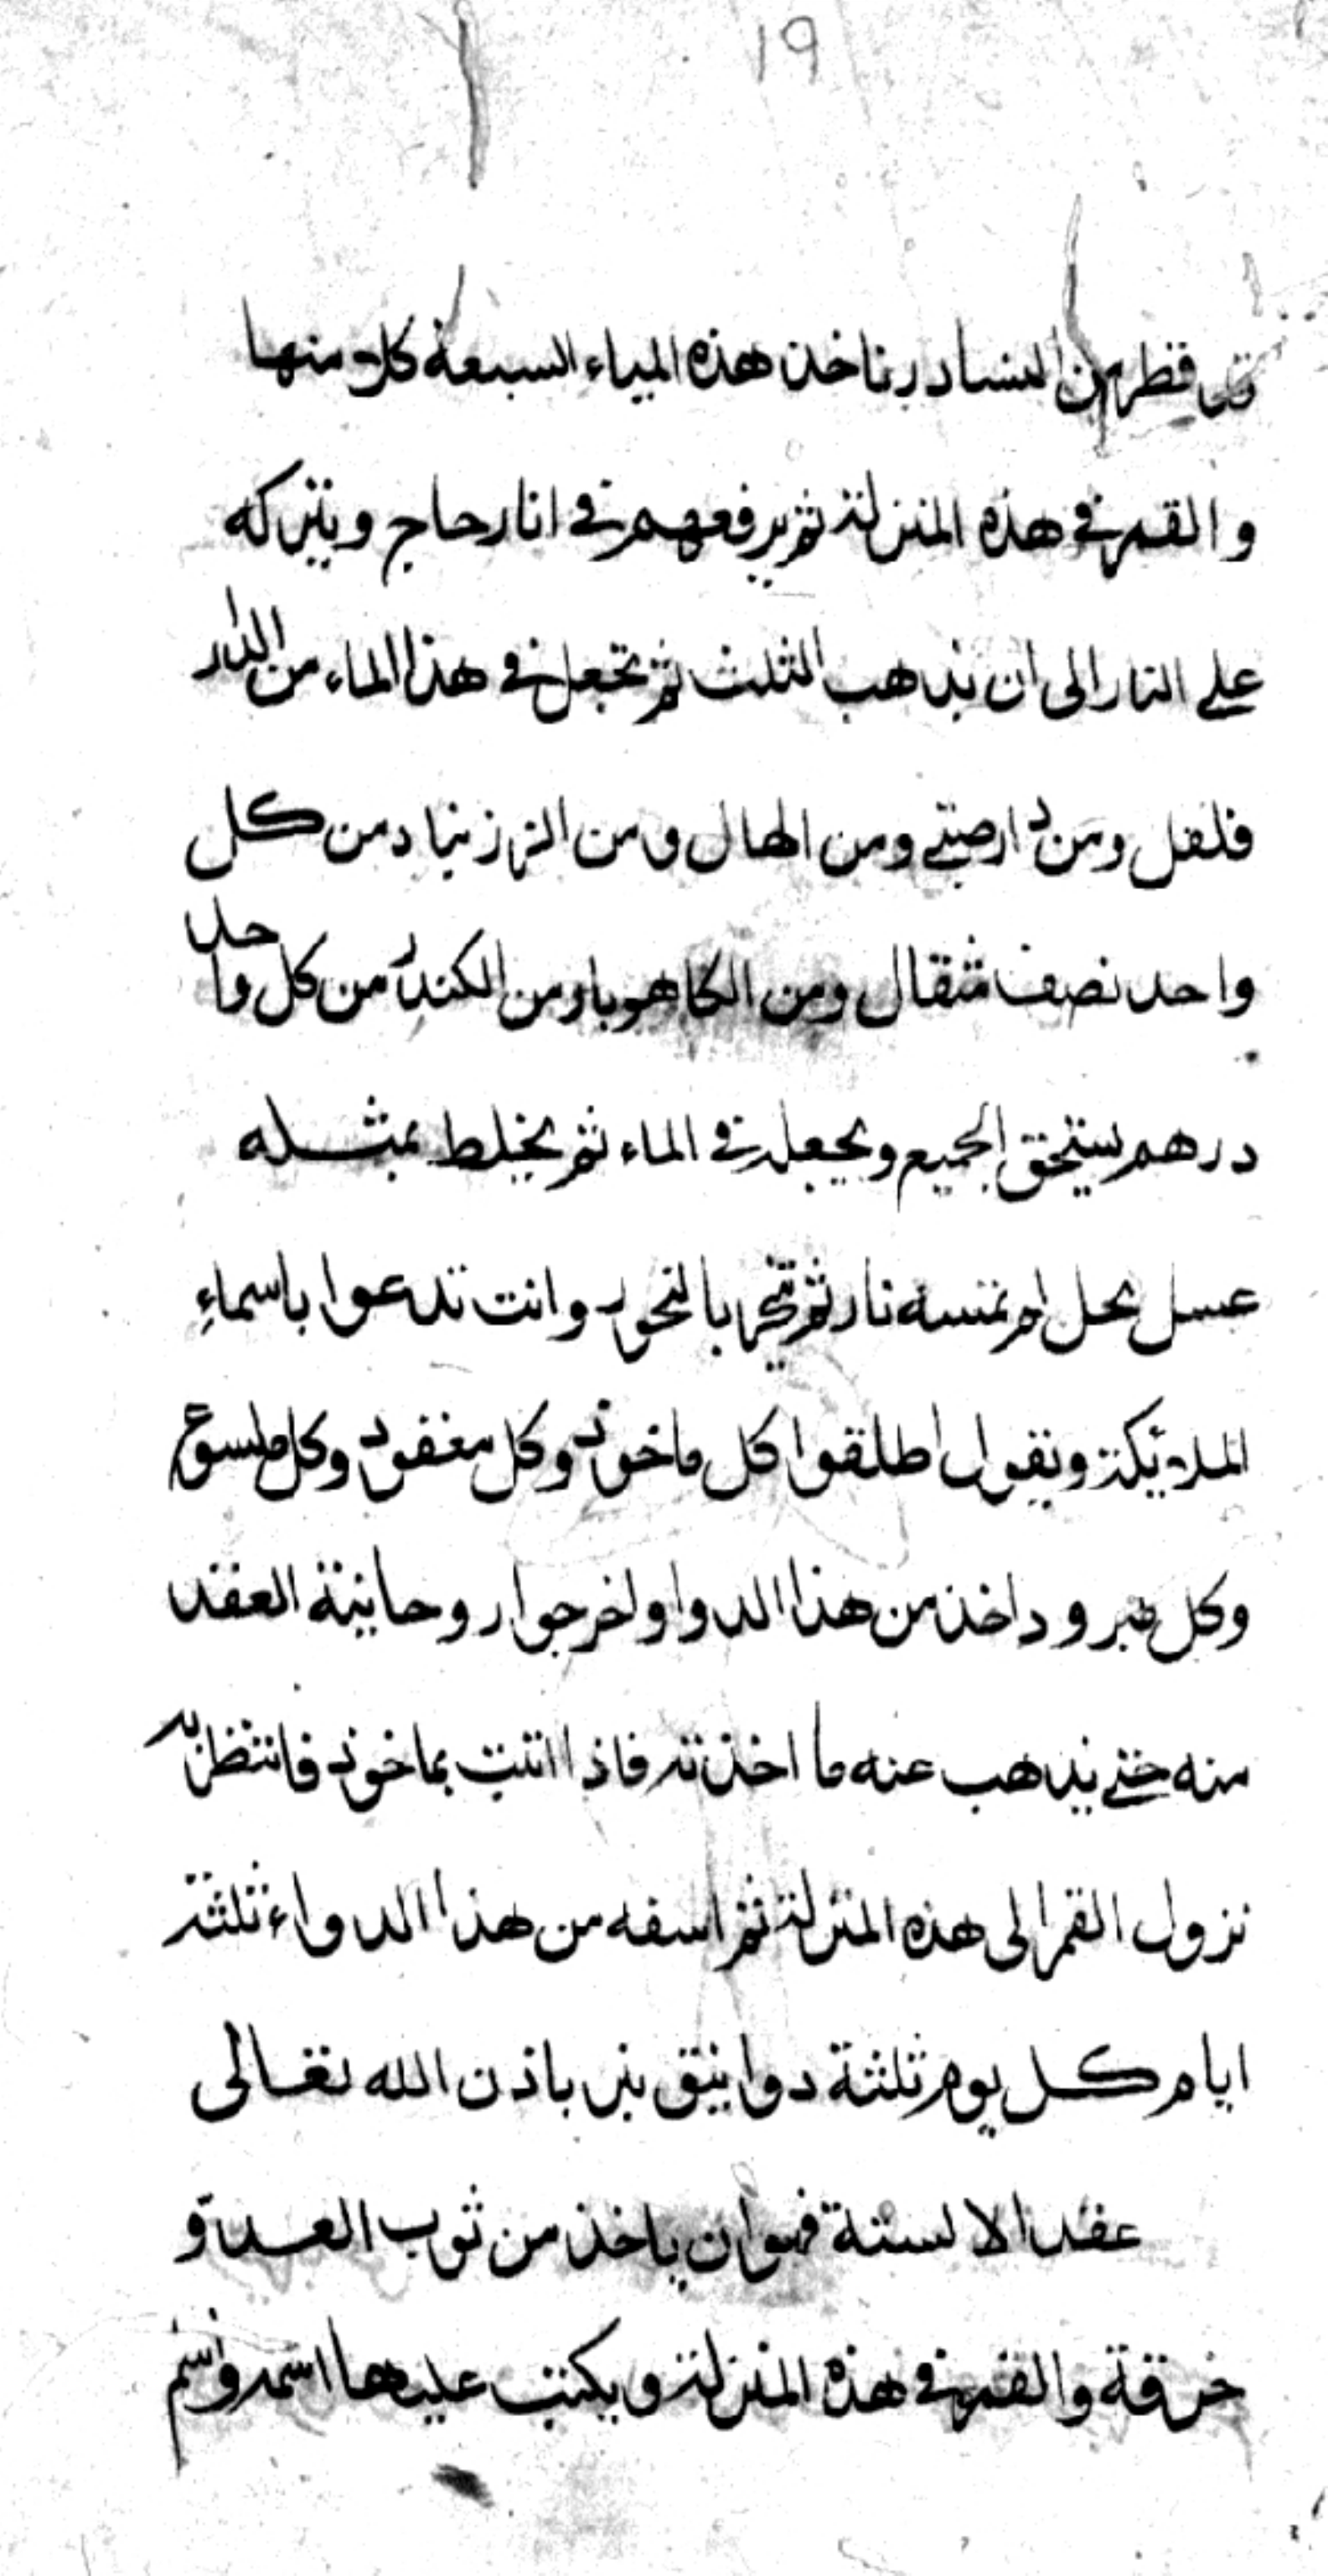 19
قطر من النشادر تاخذ هذه المياء السبعة كلا منها
والقمر في هذه المنزلة ثم يرفعهم في انا زجاج ويتركه
على النار الى ان يذهب الثلث ثم تجعل في هذا الماء من الدار
فلفل ومن دارصيني ومن الهال ومن الزرنباد من كل
واحد نصف مثقال ومن الكاهوبا ومن الكندر من كل واحد
درهم يسحق الجميع ويجعله في الماء ثم يخلط بمثله
عسل نحل لم تمسه نار ثم تبخر بالبخور وانت تدعوا باسماء
الملائكة ويقول اطلقوا كل ماخوذ وكل معقود وكل ملسوع
وكل مبرود اخذ من هذا الدوا واخرجوا روحانية العقد
منه حتى يذهب عنه ما اخذته فاذا اتيت بماخوذ فانتظر به
نزول القمر الى هذه المنزلة ثم اسقه من هذا الدواء ثلثة
ايام كل يوم ثلثة دوانيق يبر باذن الله تعالى
عقد الالسنة فهو ان ياخذ من ثوب العدو
خرقة والقمر في هذه المنزلة ويكتب عليها اسمه واسم